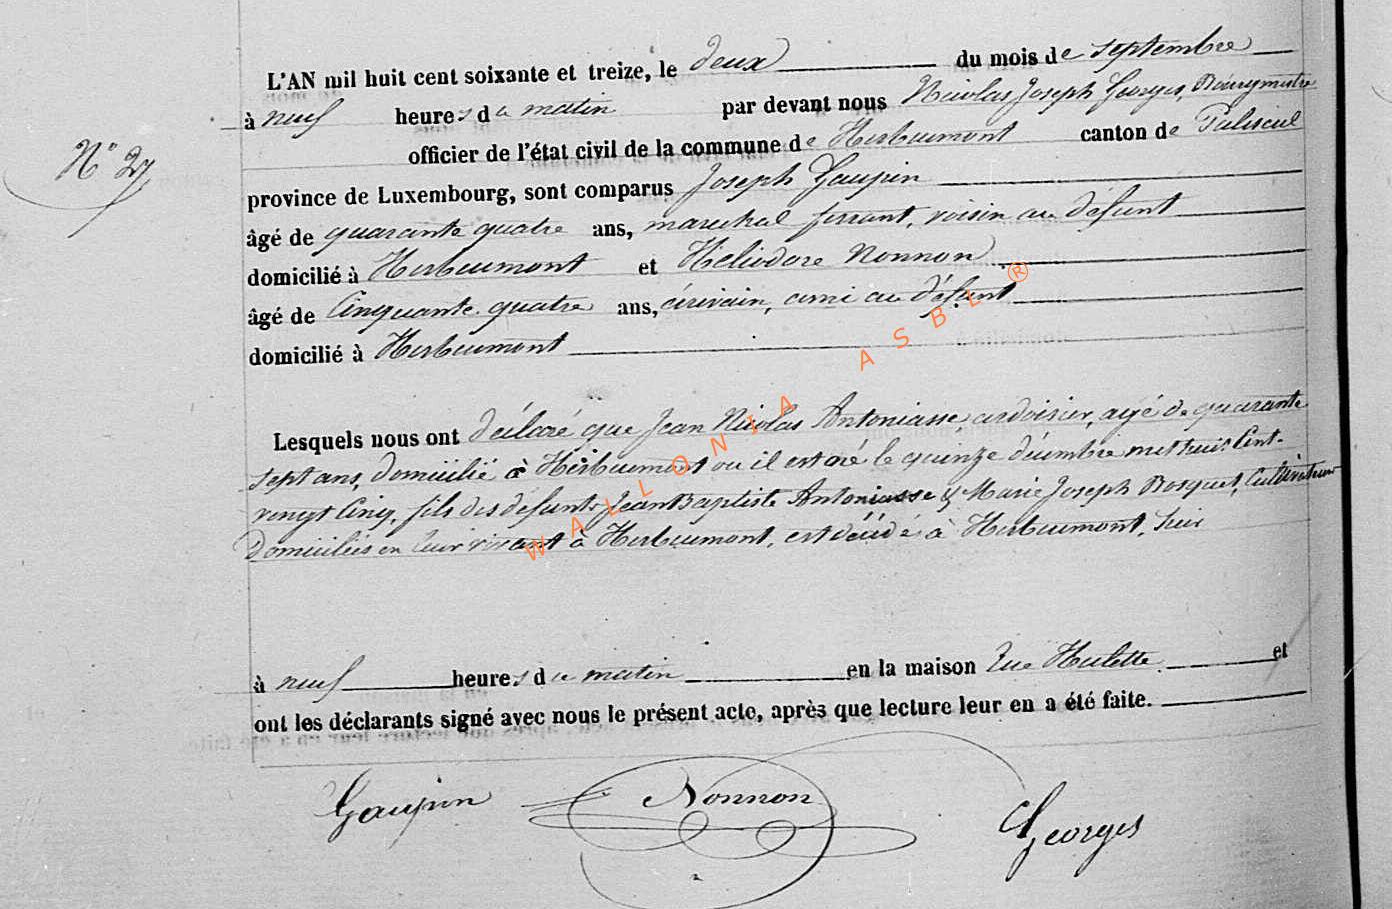 L'AN mil huit cent soixante et treize, le deux du mois de septembre
à neuf heures du matin par devant nous Nicolas Joseph Georges, Bourgmestre
officier de l'état civil de la commune de Herbeumont canton de Paliseul
N° 27
province de Luxembourg, sont comparus Joseph Gaupin
âgé de quarante quatre ans, marechal ferrant, voisin au défunt
domicilié à Herbeumont et Héliodore Nonnon
âgé de Cinquante quatre ans, écrivain, ami au défunt
domicilié à Herbeumont
Lesquels nous ont déclaré que Jean Nicolas Antoniasse, ardoisier, agé de quarante
sept ans, domicilié à Herbeumont ou il est né le quinze décembre mil huit Cent
vingt Cinq, fils des defunts Jean Baptiste Antoniasse & Marie Joseph Bosquet, Cultivateurs
Domiciliés en leur vivant à Herbeumont, est décédé à Herbeumont, hier
à neuf heures du matin en la maison rue Hulette et
ont les déclarants signé avec nous le présent acte, après que lecture leur en a été faite.
Gaupin Nonnon Georges
WALLONIA ASBL ®